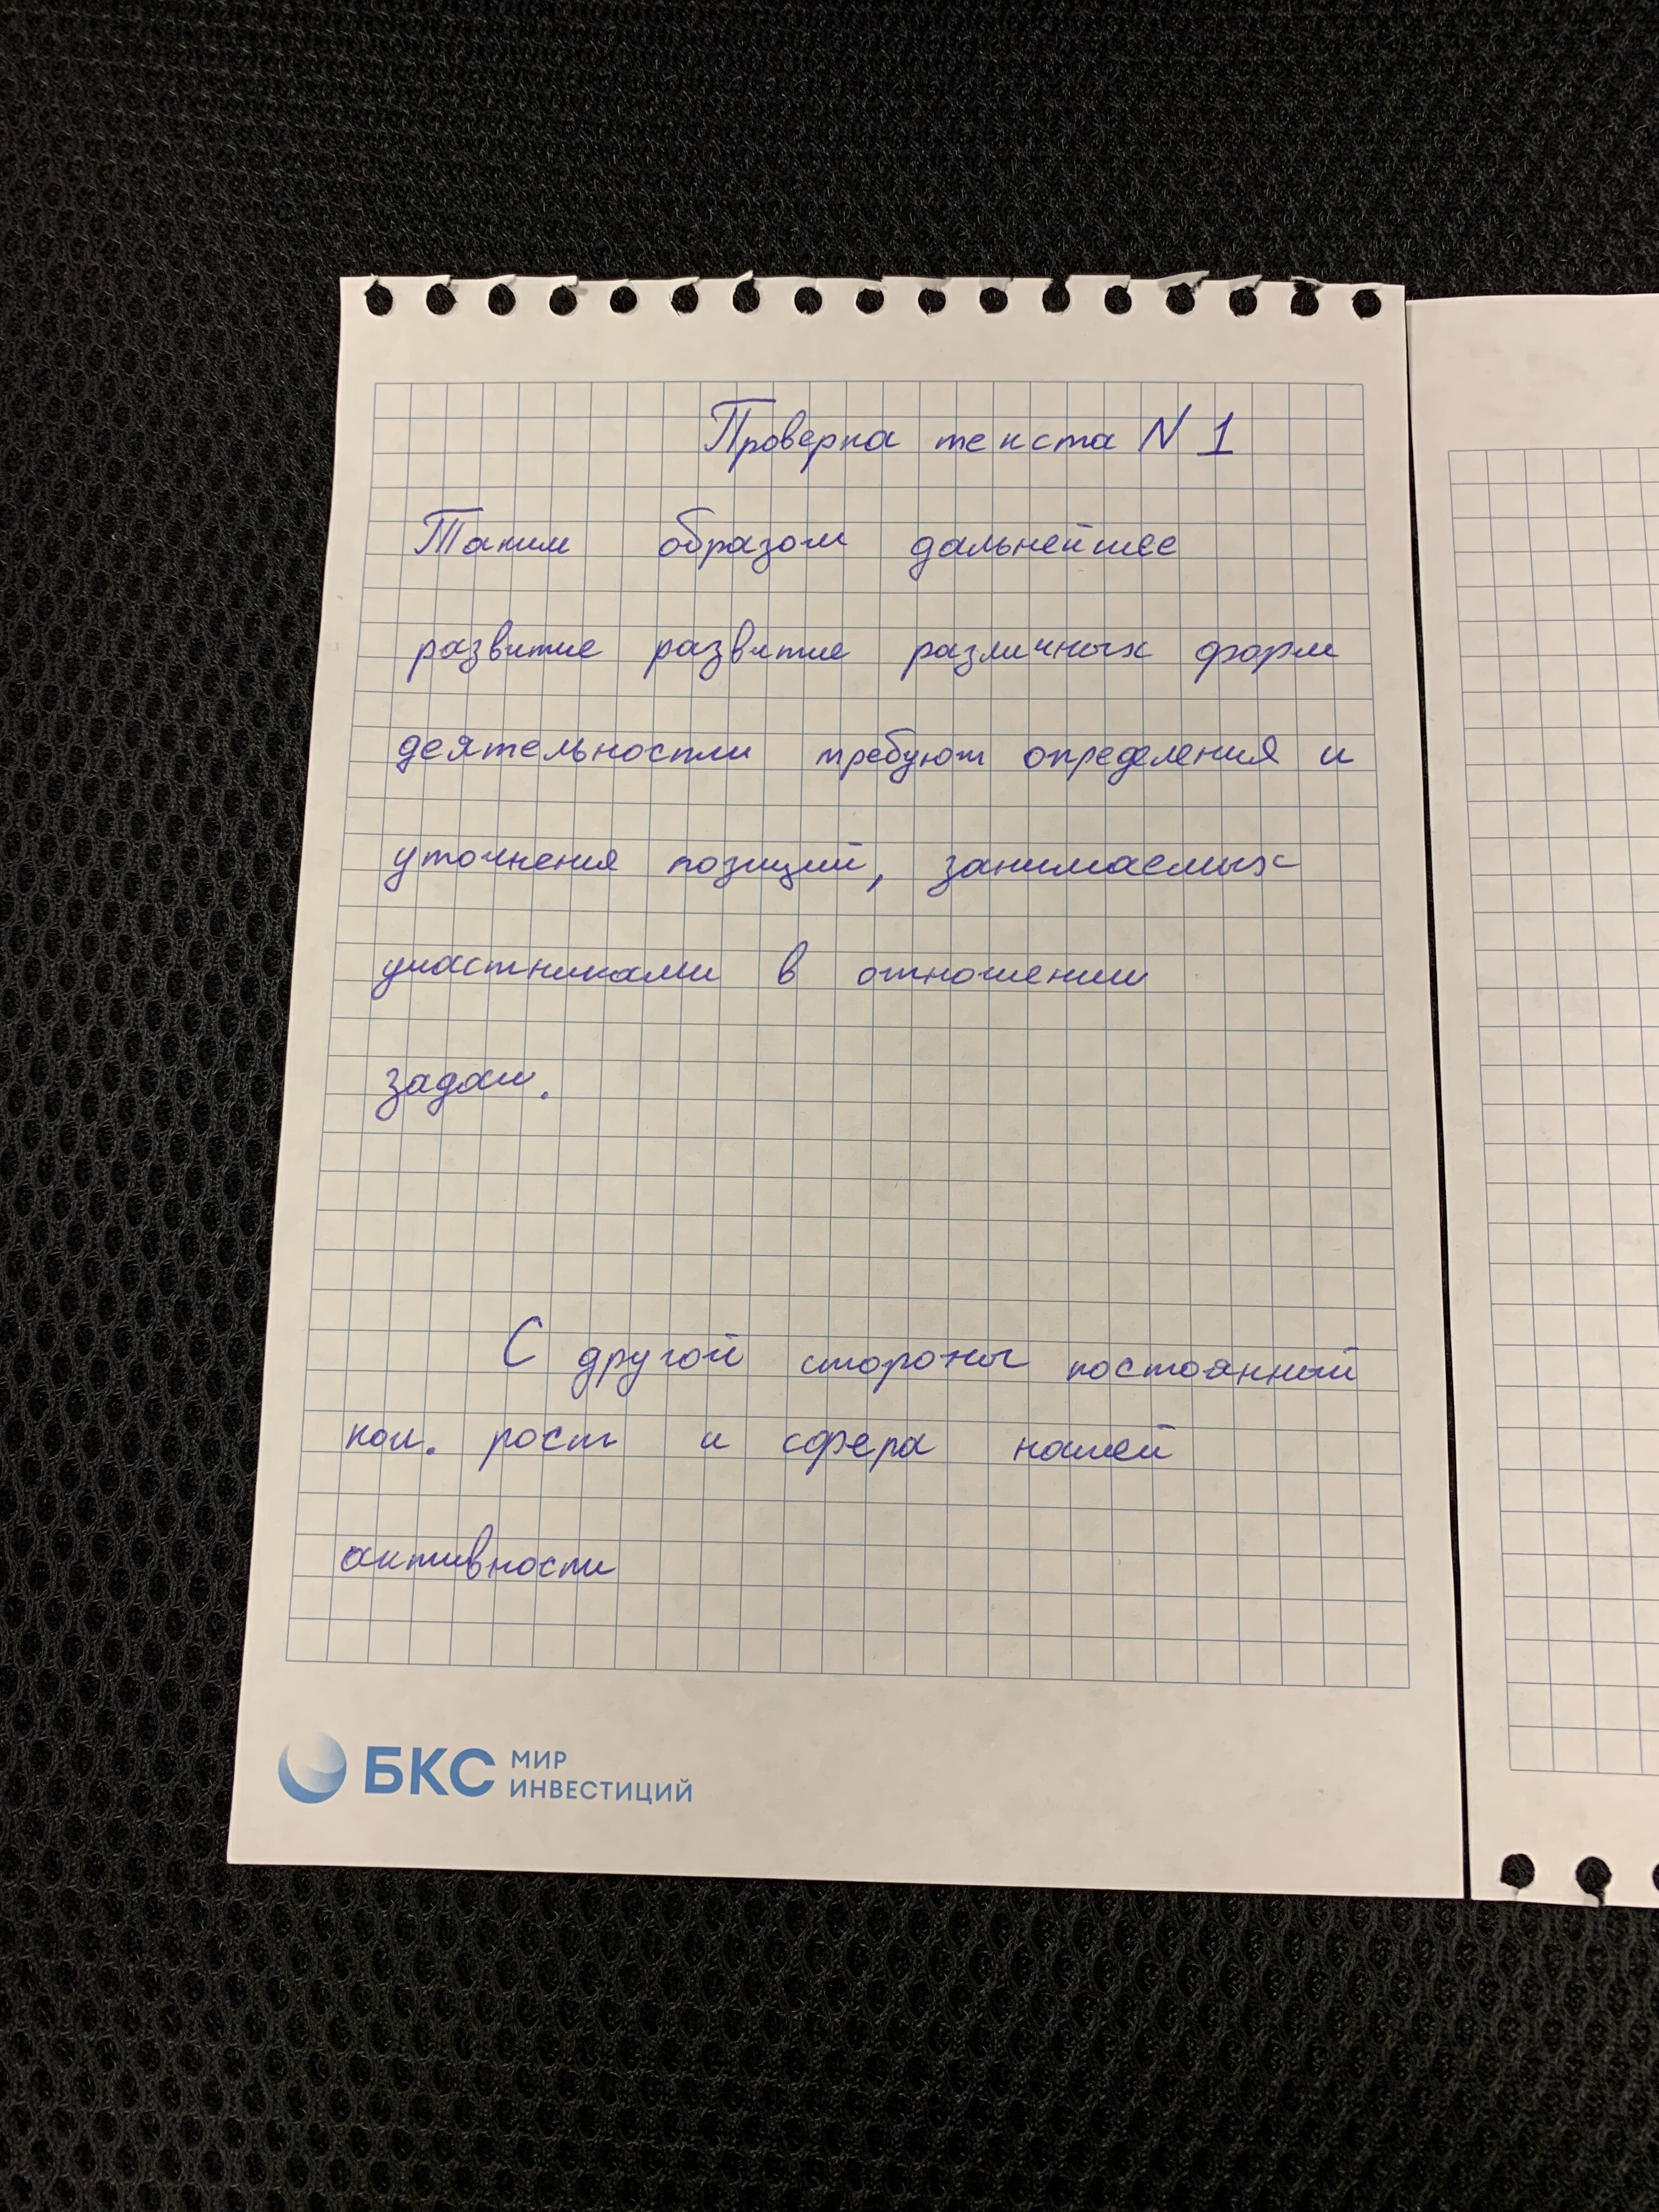 Проверка текста N 1
Таким образом дальнейшее
развитие развитие различных форм
деятельности требуют определения и
уточнения позиций, занимаемых
участниками в отношении
задач.
С другой стороны постоянный
кол. рост и сфера нашей
активности
БКС МИР
ИНВЕСТИЦИЙ